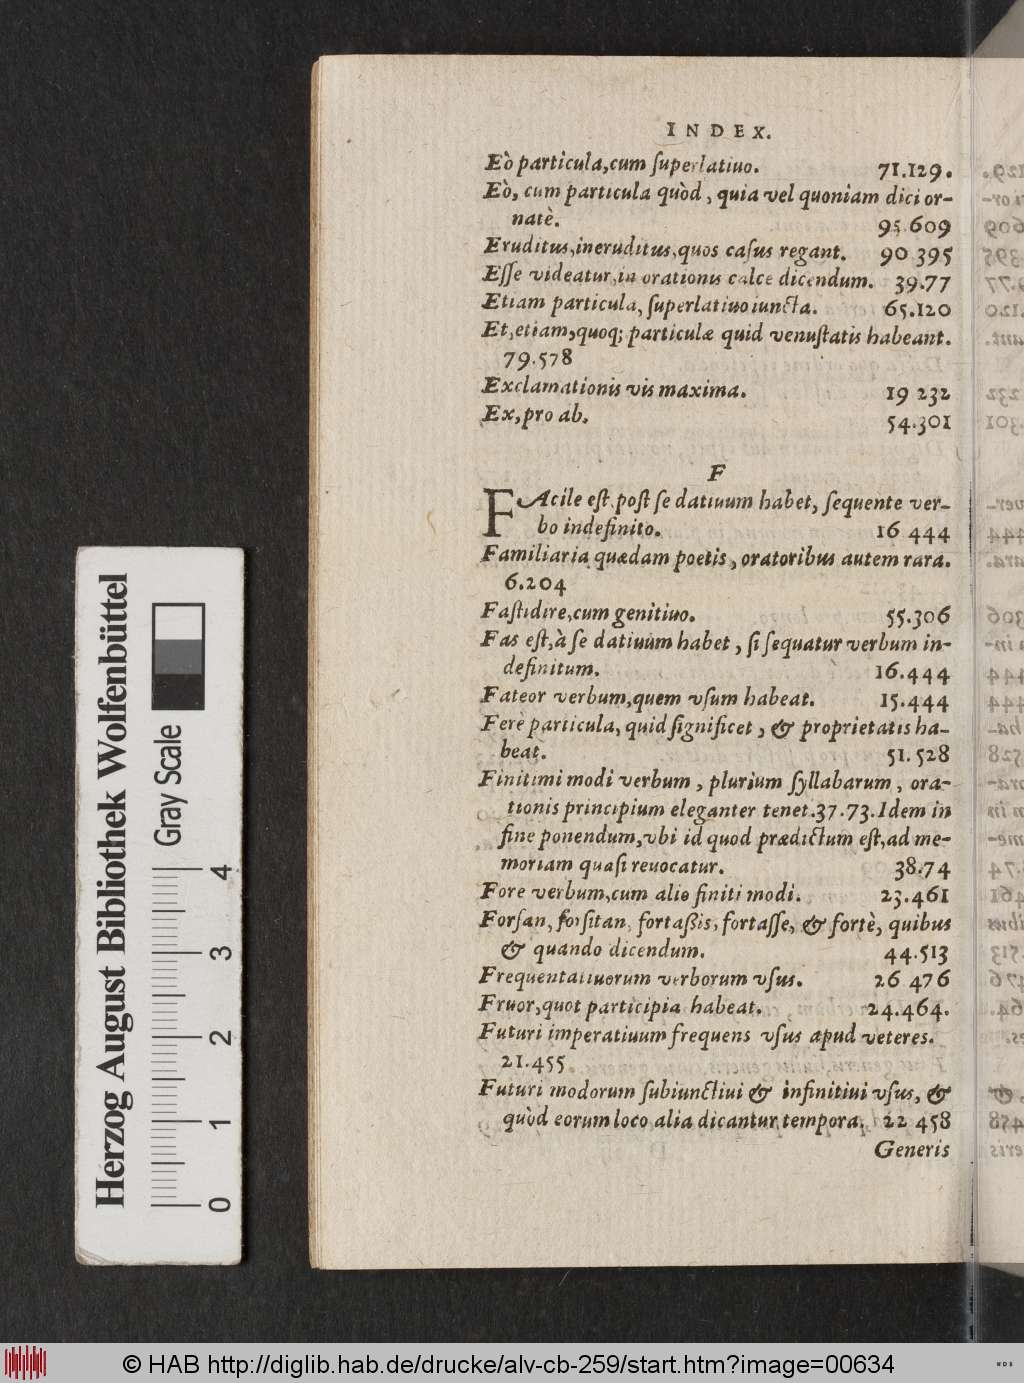 INDEX.
Eò particula,cum ſuperlatiuo. 71.129.
Eò, cum particula quòd, quia vel quoniam dici or-
natè. 95.609
Eruditus,ineruditus,quos caſus regant. 90 395
Eſſe videatur,in orationis calce dicendum. 39.77
Etiam particula, ſuperlatiuo iuncta. 65.120
Et,etiam,quoq; particulæ quid venuſtatis habeant.
79.578
Exclamationis vis maxima. 19 232
Ex,pro ab. 54.301
F
FAcile eſt poſt ſe datiuum habet, ſequente ver-
bo indefinito. 16 444
Familiaria quædam poetis, oratoribus autem rara.
6.204
Faſtidire,cum genitiuo. 55.306
Fas eſt,à ſe datiuum habet, ſi ſequatur verbum in-
definitum. 16.444
Fateor verbum,quem vſum habeat. 15.444
Ferè particula, quid ſignificet, & proprietatis ha-
beat. 51.528
Finitimi modi verbum, plurium ſyllabarum, ora-
tionis principium eleganter tenet.37.73.Idem in
fine ponendum,vbi id quod prædictum eſt,ad me-
moriam quaſi reuocatur. 38.74
Fore verbum,cum alio finiti modi. 23.461
Forſan, forſitan, fortaßis, fortaſſe, & fortè, quibus
& quando dicendum. 44.513
Frequentatiuorum verborum vſus. 26 476
Fruor,quot participia habeat. 24.464.
Futuri imperatiuum frequens vſus apud veteres.
21.455
Futuri modorum ſubiunctiui & infinitiui vſus, &
quòd eorum loco alia dicantur tempora. 22 458
Generis
Herzog August Bibliothek Wolfenbüttel
Gray Scale
0 1 2 3 4
© HAB http://diglib.hab.de/drucke/alv-cb-259/start.htm?image=00634